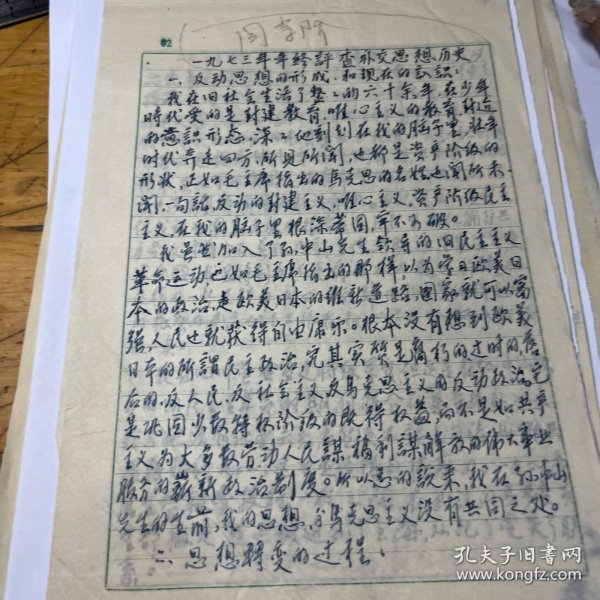 02
一九七三年年终評查补交思想历史
一、反动思想的形成和现在的认識：
我在旧社会生活了整二的六十余年，在少年
时代受的是封建教育，唯心主义的教育，封建
的意識形态，深二地刻划在我的脑子里，壮年
时代奔走四方，所見所聞，也都是资产阶级的
形状，正如毛主席指出的馬克思的名姓也闻所未
聞，一句話，反动的封建主义，唯心主义，资产阶级民主
主义，在我的脑子里根深蒂固，牢不可破。
我虽然加入了孙中山先生领导的旧民主主义
革命运动，也如毛主席指出的那样，以为学习欧美日
本的政治，走欧美日本的维新道路，國家就可以富
强人民也就获得自由康乐。根本没有想到欧美
日本的所謂民主政治，究其实質是腐朽的过时的，落
后的，反人民，反社会主义反馬克思主义的反动政治，它
是巩固少数特权阶级的既得权益，而不是如共产
主义为大多数劳动人民謀福利謀解放的伟大事业
服务的嶄新政治制度。所以总的說来，我在孙中山
先生的生前，我的思想，与馬克思主义没有共同之处。
二、思想轉变的过程：
孔夫子旧书网
www.kongfz.com